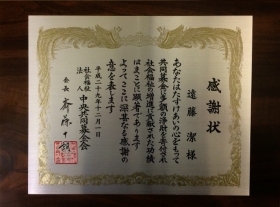 感謝状
遠藤 潔 様
あなたはたすけあいの心をもって
共同募金に多額の浄財を寄付され
社会福祉の増進に貢献された功績
はまことに顕著であります
よってここに深甚なる感謝の
意を表します
平成二十九年十二月一日
社会福祉法人 中央共同募金会
会長 斎藤十朗